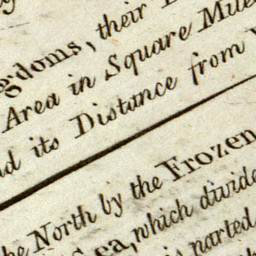 gdoms, their
Area in Square Mile
its Distance from
North by the Frozen
which divid
parted